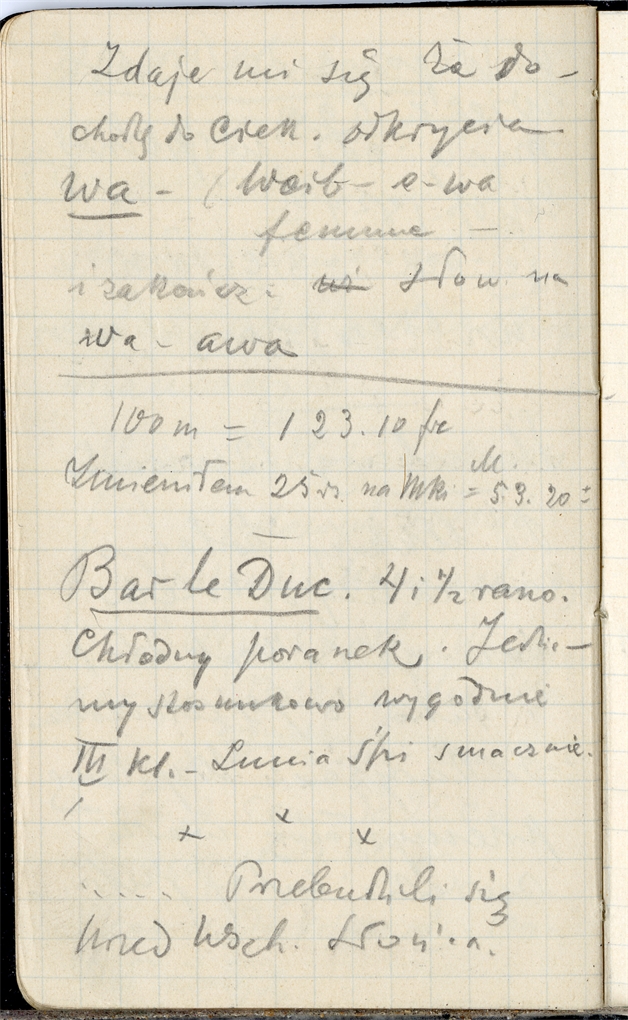 Zdaje mi się że do-
chodzę do ciek. odkrycia
wa - (Weib - e-wa
femme -
i zakończ. słow. na
wa - awa
100 m = 123.10 fr
Zmieniłem 25 na Mki = 53. 20
M.
Bar le Duc. 4 i 1/2 rano.
Chłodny poranek. Jedzie-
my stosunkowo wygodnie
III kl. - Lunia śpi smacznie.
x x x
..... Przebudzili się
przed wsch. słońca.